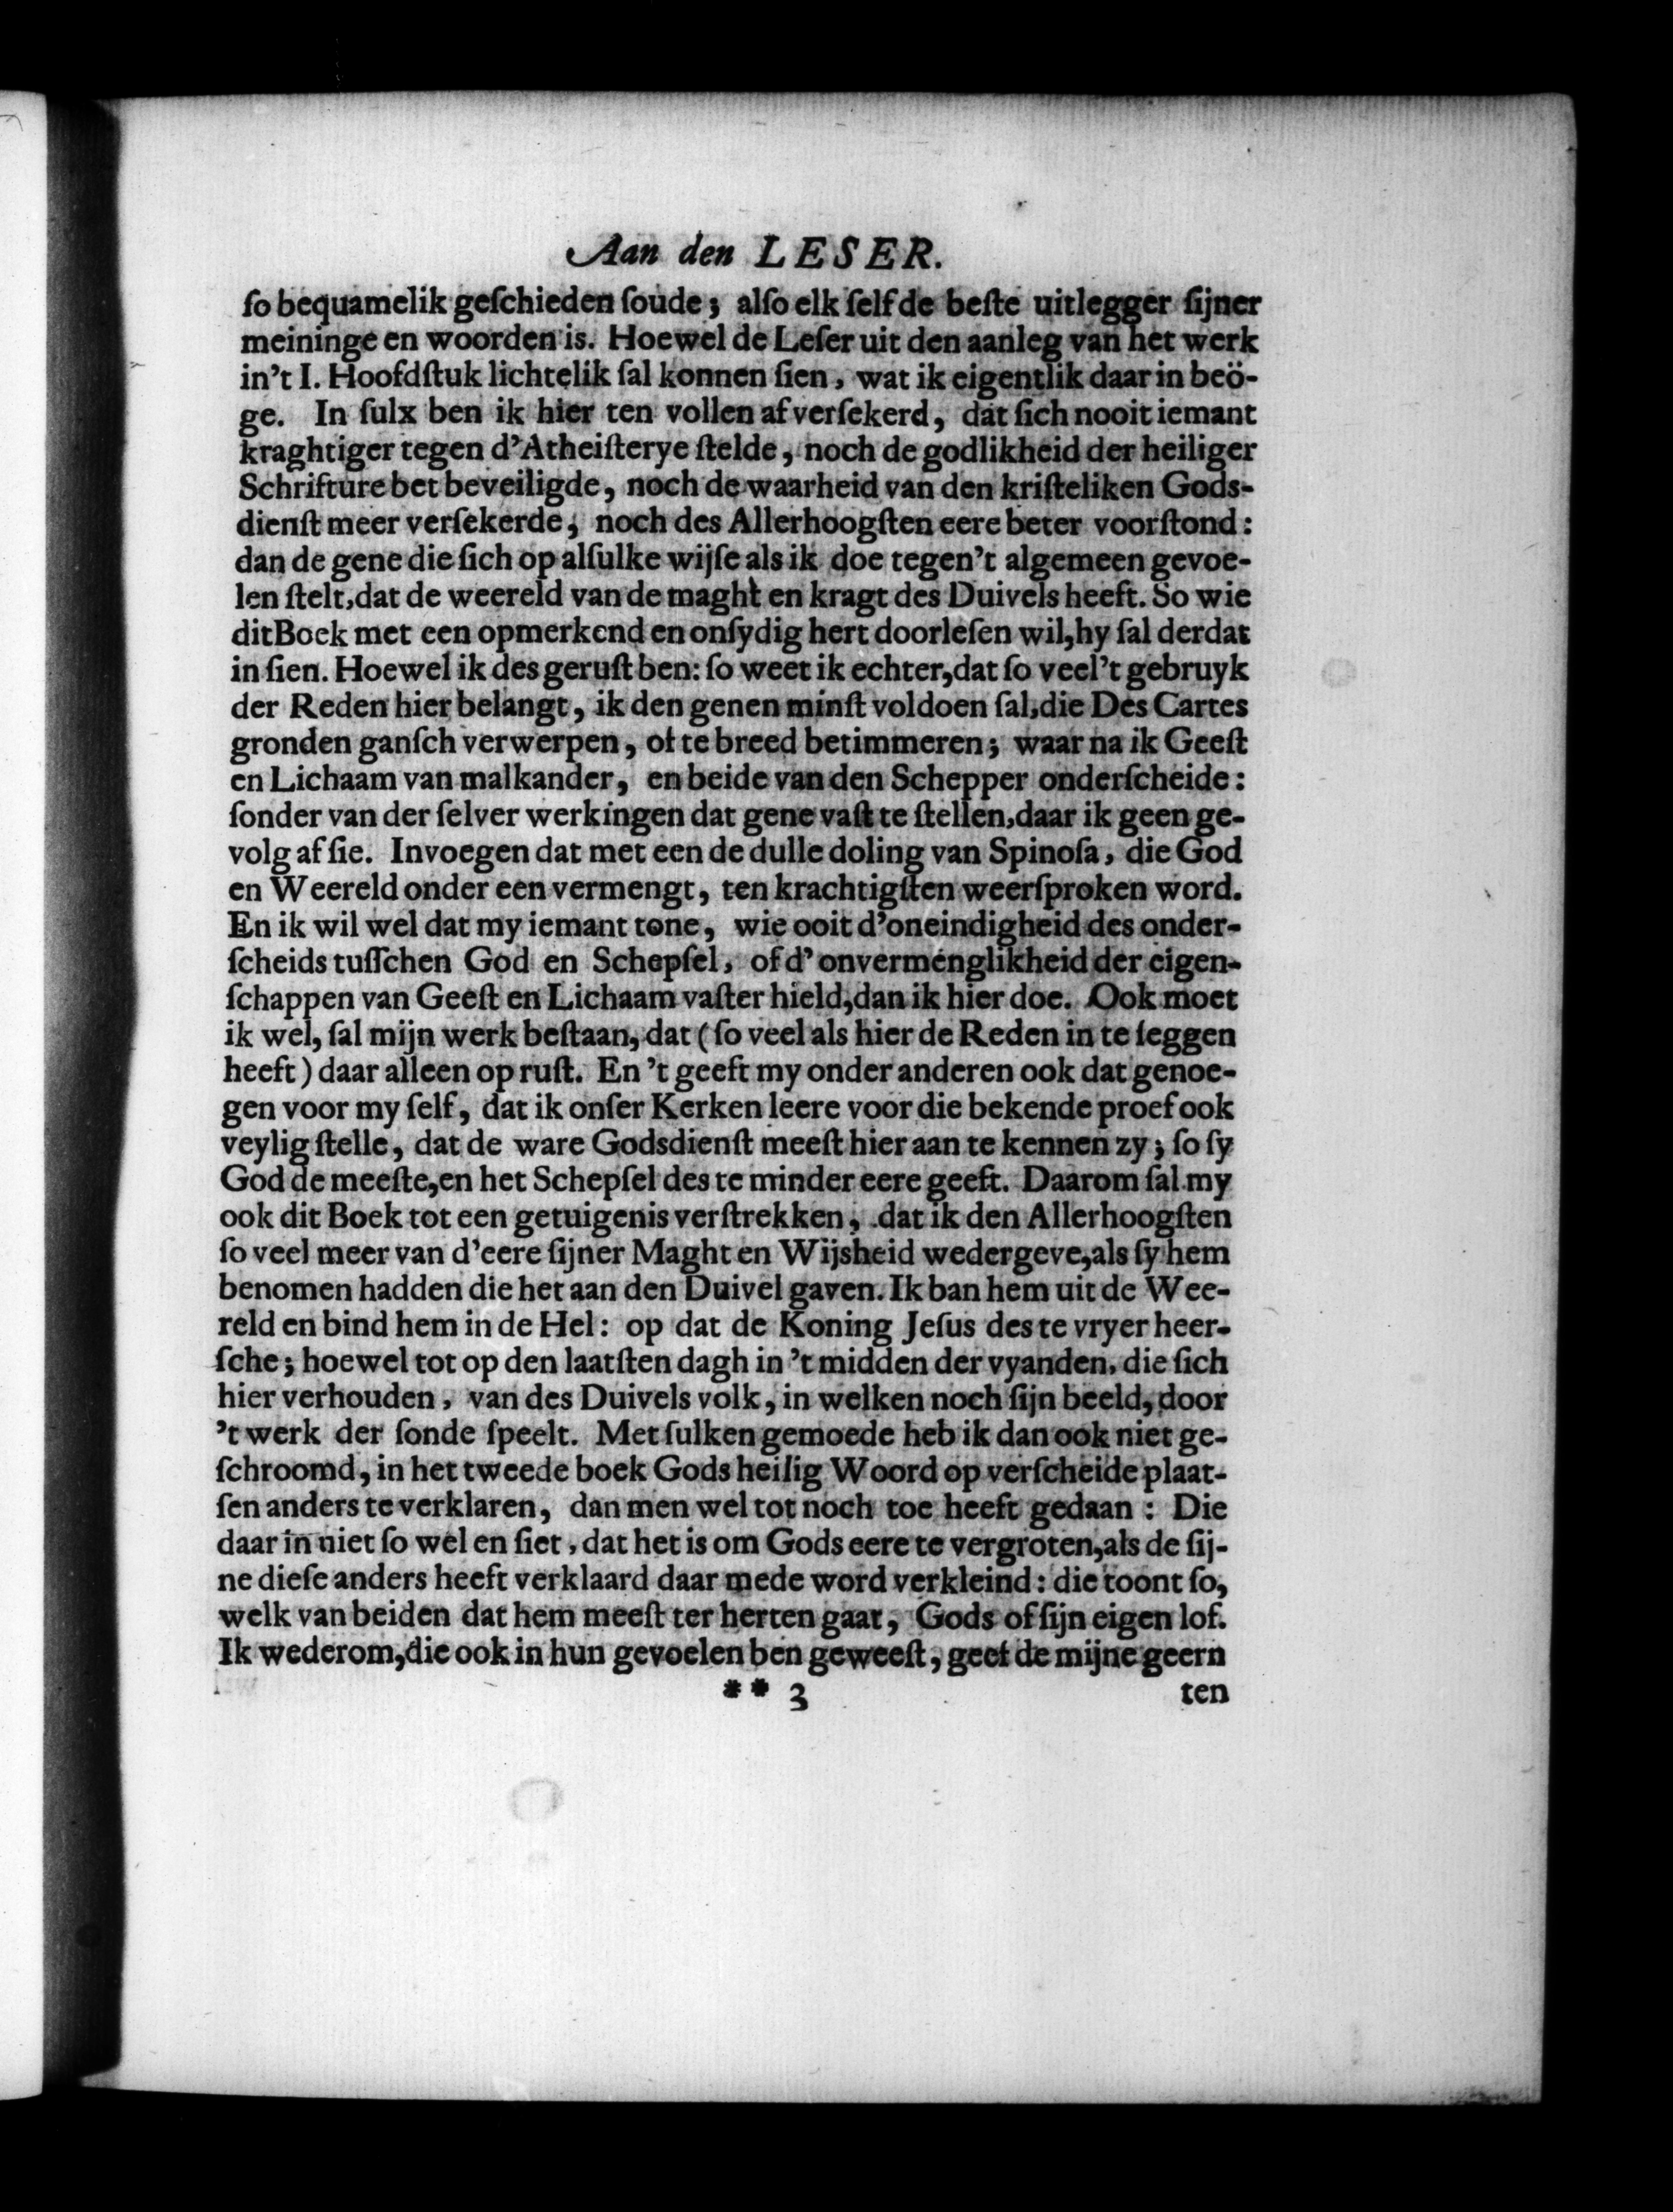 Aan den LESER.
ſo bequamelik geſchieden ſoude; alſo elk ſelf de beſte uitlegger ſijner
meininge en woorden is. Hoewel de Leſer uit den aanleg van het werk
in't I. Hoofdſtuk lichtelik ſal konnen ſien, wat ik eigentlik daar in beö-
ge. In ſulx ben ik hier ten vollen af verſekerd, dat ſich nooit iemant
kraghtiger tegen d'Atheiſterye ſtelde, noch de godlikheid der heiliger
Schrifture bet beveiligde, noch de waarheid van den kriſteliken Gods-
dienſt meer verſekerde, noch des Allerhoogſten eere beter voorſtond:
dan de gene die ſich op alſulke wijſe als ik doe tegen't algemeen gevoe-
len ſtelt, dat de weereld van de maght en kragt des Duivels heeft. So wie
dit Boek met een opmerkend en onſydig hert doorleſen wil, hy ſal der dat
in ſien. Hoewel ik des geruſt ben: ſo weet ik echter, dat ſo veel 't gebruyk
der Reden hier belangt, ik den genen minſt voldoen ſal, die Des Cartes
gronden ganſch verwerpen, of te breed betimmeren; waar na ik Geeſt
en Lichaam van malkander, en beide van den Schepper onderſcheide:
ſonder van der ſelver werkingen dat gene vaſt te ſtellen, daar ik geen ge-
volg af ſie. Invoegen dat met een de dulle doling van Spinoſa, die God
en Weereld onder een vermengt, ten krachtigſten weerſproken word.
En ik wil wel dat my iemant tone, wie ooit d'oneindigheid des onder-
ſcheids tuſſchen God en Schepſel, of d'onvermenglikheid der eigen-
ſchappen van Geeſt en Lichaam vaſter hield, dan ik hier doe. Ook moet
ik wel, ſal mijn werk beſtaan, dat (ſo veel als hier de Reden in te ſeggen
heeft) daar alleen op ruſt. En 't geeft my onder anderen ook dat genoe-
gen voor my ſelf, dat ik onſer Kerken leere voor die bekende proef ook
veylig ſtelle, dat de ware Godsdienſt meeſt hier aan te kennen zy; ſo ſy
God de meeſte, en het Schepſel des te minder eere geeft. Daarom ſal my
ook dit Boek tot een getuigenis verſtrekken, dat ik den Allerhoogſten
ſo veel meer van d'eere ſijner Maght en Wijsheid wedergeve, als ſy hem
benomen hadden die het aan den Duivel gaven. Ik ban hem uit de Wee-
reld en bind hem in de Hel: op dat de Koning Jeſus des te vryer heer-
ſche; hoewel tot op den laatſten dagh in 't midden der vyanden, die ſich
hier verhouden, van des Duivels volk, in welken noch ſijn beeld, door
't werk der ſonde ſpeelt. Met ſulken gemoede heb ik dan ook niet ge-
ſchroomd, in het tweede boek Gods heilig Woord op verſcheide plaat-
ſen anders te verklaren, dan men wel tot noch toe heeft gedaan: Die
daar in niet ſo wel en ſiet, dat het is om Gods eere te vergroten, als de ſij-
ne dieſe anders heeft verklaard daar mede word verkleind: die toont ſo,
welk van beiden dat hem meeſt ter herten gaat, Gods of ſijn eigen lof.
Ik wederom, die ook in hun gevoelen ben geweeſt, geef de mijne geern
** 3 ten